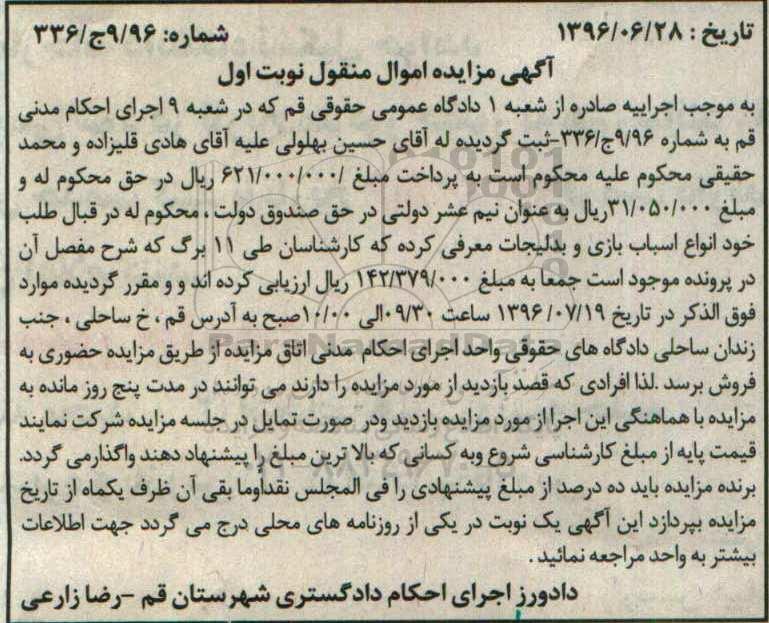 تاریخ : ۱۳۹۶/۰۶/۲۸ شماره: ۹/۹۶ج/۳۳۶
آگهی مزایده اموال منقول نوبت اول
به موجب اجراییه صادره از شعبه ۱ دادگاه عمومی حقوقی قم که در شعبه ۹ اجرای احکام مدنی
قم به شماره ۹/۹۶ج/۳۳۶-ثبت گردیده له آقای حسین بهلولی علیه آقای هادی قلیزاده و محمد
حقیقی محکوم علیه محکوم است به پرداخت مبلغ /۶۲۱/۰۰۰/۰۰۰ ریال در حق محکوم له و
مبلغ ۳۱/۰۵۰/۰۰۰ریال به عنوان نیم عشر دولتی در حق صندوق دولت ، محکوم له در قبال طلب
خود انواع اسباب بازی و بدلیجات معرفی کرده که کارشناسان طی ۱۱ برگ که شرح مفصل آن
در پرونده موجود است جمعا به مبلغ ۱۴۲/۳۷۹/۰۰۰ ریال ارزیابی کرده اند و و مقرر گردیده موارد
فوق الذکر در تاریخ ۱۳۹۶/۰۷/۱۹ ساعت ۰۹/۳۰الی ۱۰/۰۰صبح به آدرس قم ، خ ساحلی ، جنب
زندان ساحلی دادگاه های حقوقی واحد اجرای احکام مدنی اتاق مزایده از طریق مزایده حضوری به
فروش برسد .لذا افرادی که قصد بازدید از مورد مزایده را دارند می توانند در مدت پنج روز مانده به
مزایده با هماهنگی این اجرا از مورد مزایده بازدید ودر صورت تمایل در جلسه مزایده شرکت نمایند
قیمت پایه از مبلغ کارشناسی شروع وبه کسانی که بالا ترین مبلغ را پیشنهاد دهند واگذارمی گردد.
برنده مزایده باید ده درصد از مبلغ پیشنهادی را فی المجلس نقدأوما بقی آن ظرف یکماه از تاریخ
مزایده بپردازد این آگهی یک نوبت در یکی از روزنامه های محلی درج می گردد جهت اطلاعات
بیشتر به واحد مراجعه نمائید .
دادورز اجرای احکام دادگستری شهرستان قم -رضا زارعی
ParsNamadData